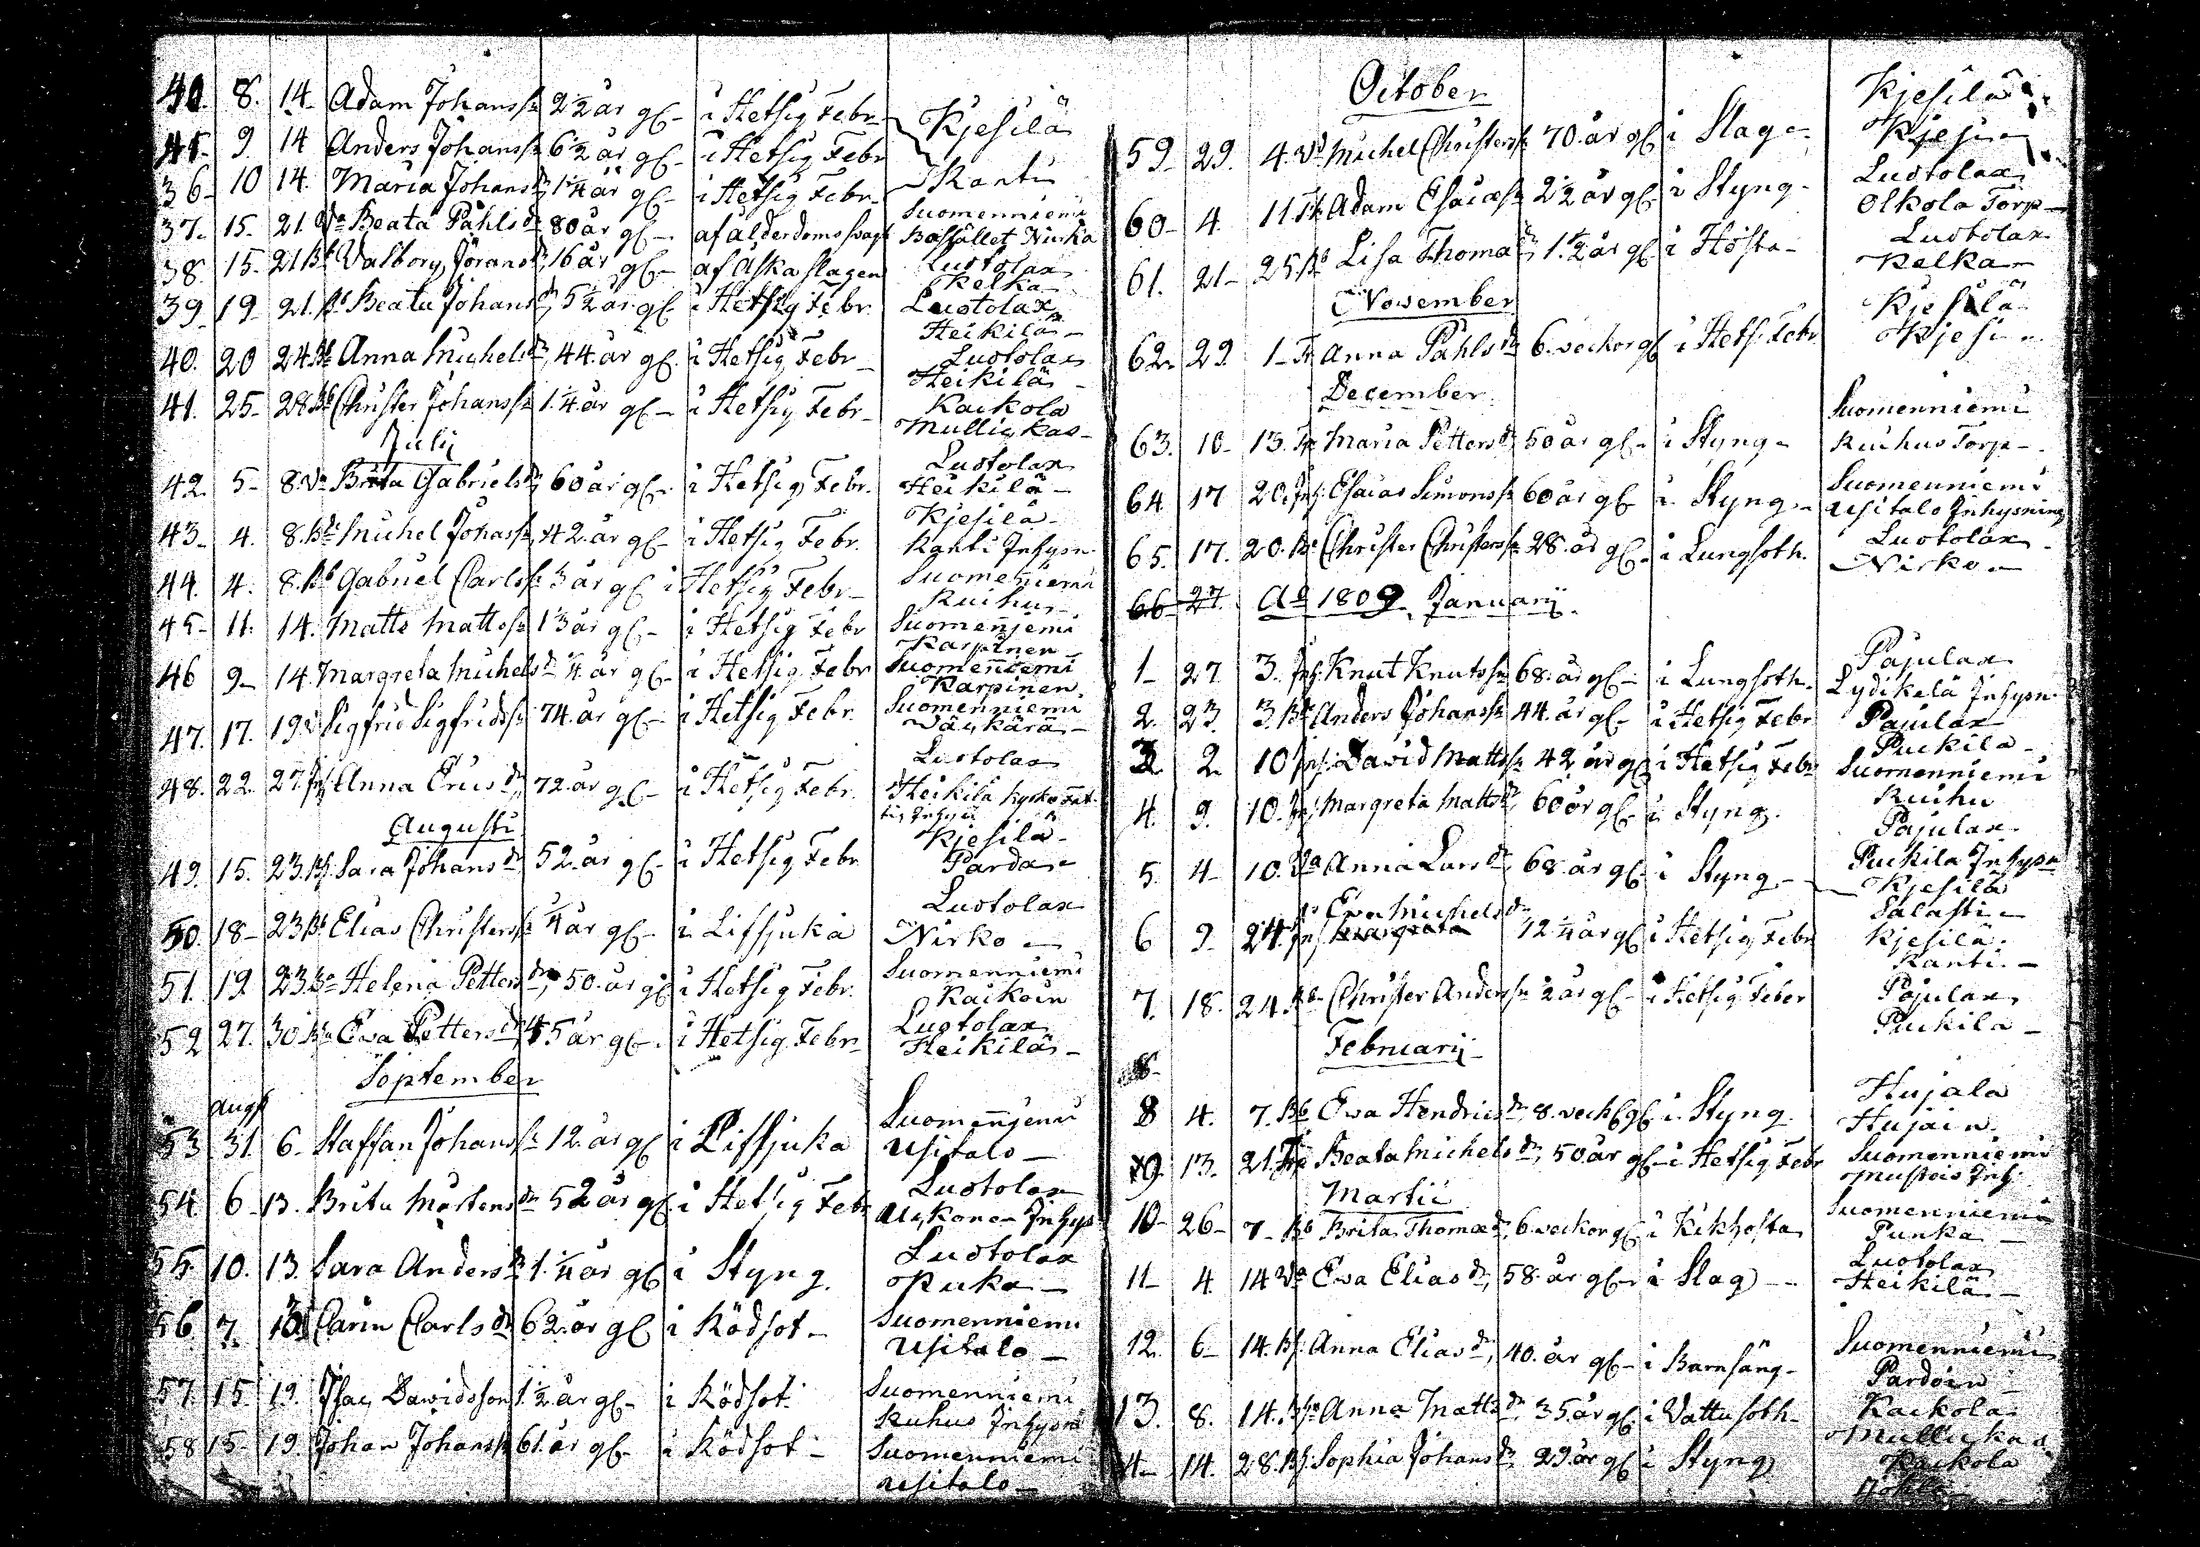 40. 8. 14. Adam Johanss: 2½ år gl- i Hetsig Febr- Kjesilä
41. 9. 14 Anders Johanss: 6½ år gl- i Hetsig Febr
36- 10 14. Maria Johansdr 1¼ år gl- i Hetsig Febr- Kanti
37. 15. 21. Beata Påhlsdr 80 år gl- af ålderdoms svagh Suomenniemi
Nirka
38. 15- 21 Valborg Jöransdr 16 år gl- af Åska slagen Luotolax
Kelka
39. 19- 21. Beata Johansdr 5½ år gl- i Hetsig Febr. Luotolax
Heikilä-
40. 20 24 Anna Michelsdr 44. år gl- i Hetsig Febr- Luotolax
Heikilä-
41. 25- 28 Christer Johanss: 1¼ år gl- i Hetsig Febr- Kackola
Mullickas-
July
42. 5- 8. Brita Gabrielsdr 60 år gl- i Hetsig Febr. Luotolax
Heikilä-
43- 4. 8. Michel Johanss: 42. år gl- i Hetsig Febr. Kjesilä-
Kanti Inhysn.
44. 4. 8. Gabriel Carlss: 3 år gl i Hetsig Febr- Suomeniemi
Ruihus-
45- 11. 14. Matts Mattss: 13 år gl- i Hetsig Febr Suomenjemi
Karpinen
46 9- 14. Margreta Michelsdr ¼ år gl- i Hetsig Febr Suomeniemi
Karpinen
47. 17. 19. Sigfrid Sigfridss: 74. år gl- i Hetsig Febr. Suomenniemi
Väykärä-
48. 22. 27. Anna Ericsdr 72. år gl- i Hetsig Febr. Luotolax
Heikilä
Augusti
49. 15. 23. Sara Johansdr 52. år gl- i Hetsig Febr Kjesilä-
Parda-
50. 18- 23 Elias Christerss: ¼ år gl- i Lifsjuka Luotolax
Nirko-
51. 19 23. Helena Pettersdr 50. år gl i Hetsig Febr. Suomenniemi
Kaikoin
52 27. 30. Eva Pettersdr 45 år gl- i Hetsig Febr- Luotolax
Heikilä-
September
Aug
53 31. 6- Staffan Johanss: 12. år gl i Lifsjuka Suomenjemi
Usitalo-
54. 6- 13. Brita Mårtensdr 52 år gl i Hetsig Febr Luotolax
Inhys
55. 10. 13. Sara Andersdr 1¼ år gl i Styng. Luotolax
Puka-
56 7. 13 Carin Carlsdr 62. år gl i Rödsot- Suomenniemi
Usitalo-
57. 15. 19. Isac Davidsson 1½ år gl- i Rödsot- Suomenniemi
Ruhus Inhysn
58 15- 19. Johan Johanss: 61. år gl- i Rödsot- Suomenniemi
Usitalo-
October
59. 29. 4. Michel Christerss: 70. år gl i Slag- Kjesilä
Kjesi-
60- 4. 11 Adam Esaiæs: 2½ år gl i Styng- Luotolax
Olkola Torp-
61. 21- 25 Lisa Thomædr 1½ år gl i Hosta- Luotolax
Kelka-
November
62. 29. 1- Anna Påhlsdr 6. veckor gl i Hets. Febr Kjesilä
Kjesi-
December
63. 10- 13. Maria Pettersdr 50 år gl- i Styng- Suomenniemi
Ruihus Torp-
64 17. 20. Esaias Simonss: 60 år gl i Styng- Suomenniemi
Usitalo Inhysning
65. 17. 20. Christer Christerss: 28. år gl- i Lungsoth. Luotolax
Nirko-
66 27. Ao 1809. Januarij.
1- 27 3. Inh. Knut Knutss: 68. år gl- i Lungsoth. Pajulax
Lydikelä Inhysn.
2. 23. 3. Anders Johanss: 44. år gl- i Hetsig Febr Pajulax
Puckila-
3. 2. 10 Inh. David Mattss: 42 år gl i Hetsig Febr Suomenniemi
Ruihu
4. 9. 10. Inh. Margreta Mattsdr 60 år gl- i Styng. Pajulax.
Puckila Inhysn
5. 4- 10. Anna Larsdr 68. år gl- i Styng- Kjesilä
Salasti-
6 9. 24. Eva Michelsdr
Margreta 12¼ år gl i Hetsig Febr Kjesilä.
Kanti-
7. 18. 24. Christer Anderss: 2 år gl- i Hetsig Feber Pajulax
Puckila-
Februarij
8 4. 7. Eva Hendricsdr 8. veck gl i Styng. Hujala
Hujain.
9. 13. 21. Beata Michelsdr, 50 år gl- i Hetsig Febr Suomenniemi
Mustois Inh:
Martii
10- 26- 7- Brita Thomædr, 6 veckor gl i Kikhosta Suomenniemi
Punka-
11- 4. 14 Eva Eliasdr, 58. år gl- i Slag- Luotolax
Heikilä-
12. 6- 14. Anna Eliasdr, 40. år gl- i Barnsäng- Suomenniemi
Pardoin-
13. 8. 14. Anna Mattsdr 35 år gl i Vattusoth- Kackola
Mullicka
4- 14. 28. Sophia Johansdr 29. år gl i Styng Kackola